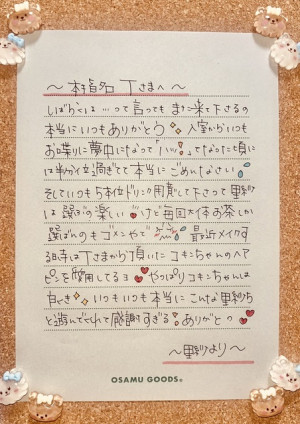 〜本指名 Tさまへ〜
しばらくは…って言っても また来て下さるの
本当にいつもありがとう 入室からいつも
お喋りに夢中になって「ハッ!」てなった頃に
は半分位過ぎてて本当にごめんなさい
そしていつも5本位ドリンク用意して下さって里紗
は選ぶの楽しい けど毎回大体お茶しか
選ばんのもゴメンやで 最近メイクする
時はTさまから頂いたコキンちゃんのヘア
ピンを愛用してるヨ やっぱりコキンちゃんは
白くき いつもいつも本当にこんな里紗ち
と遊んでくれて感謝すぎる! ありがとっ
〜里紗より〜
OSAMU GOODS®